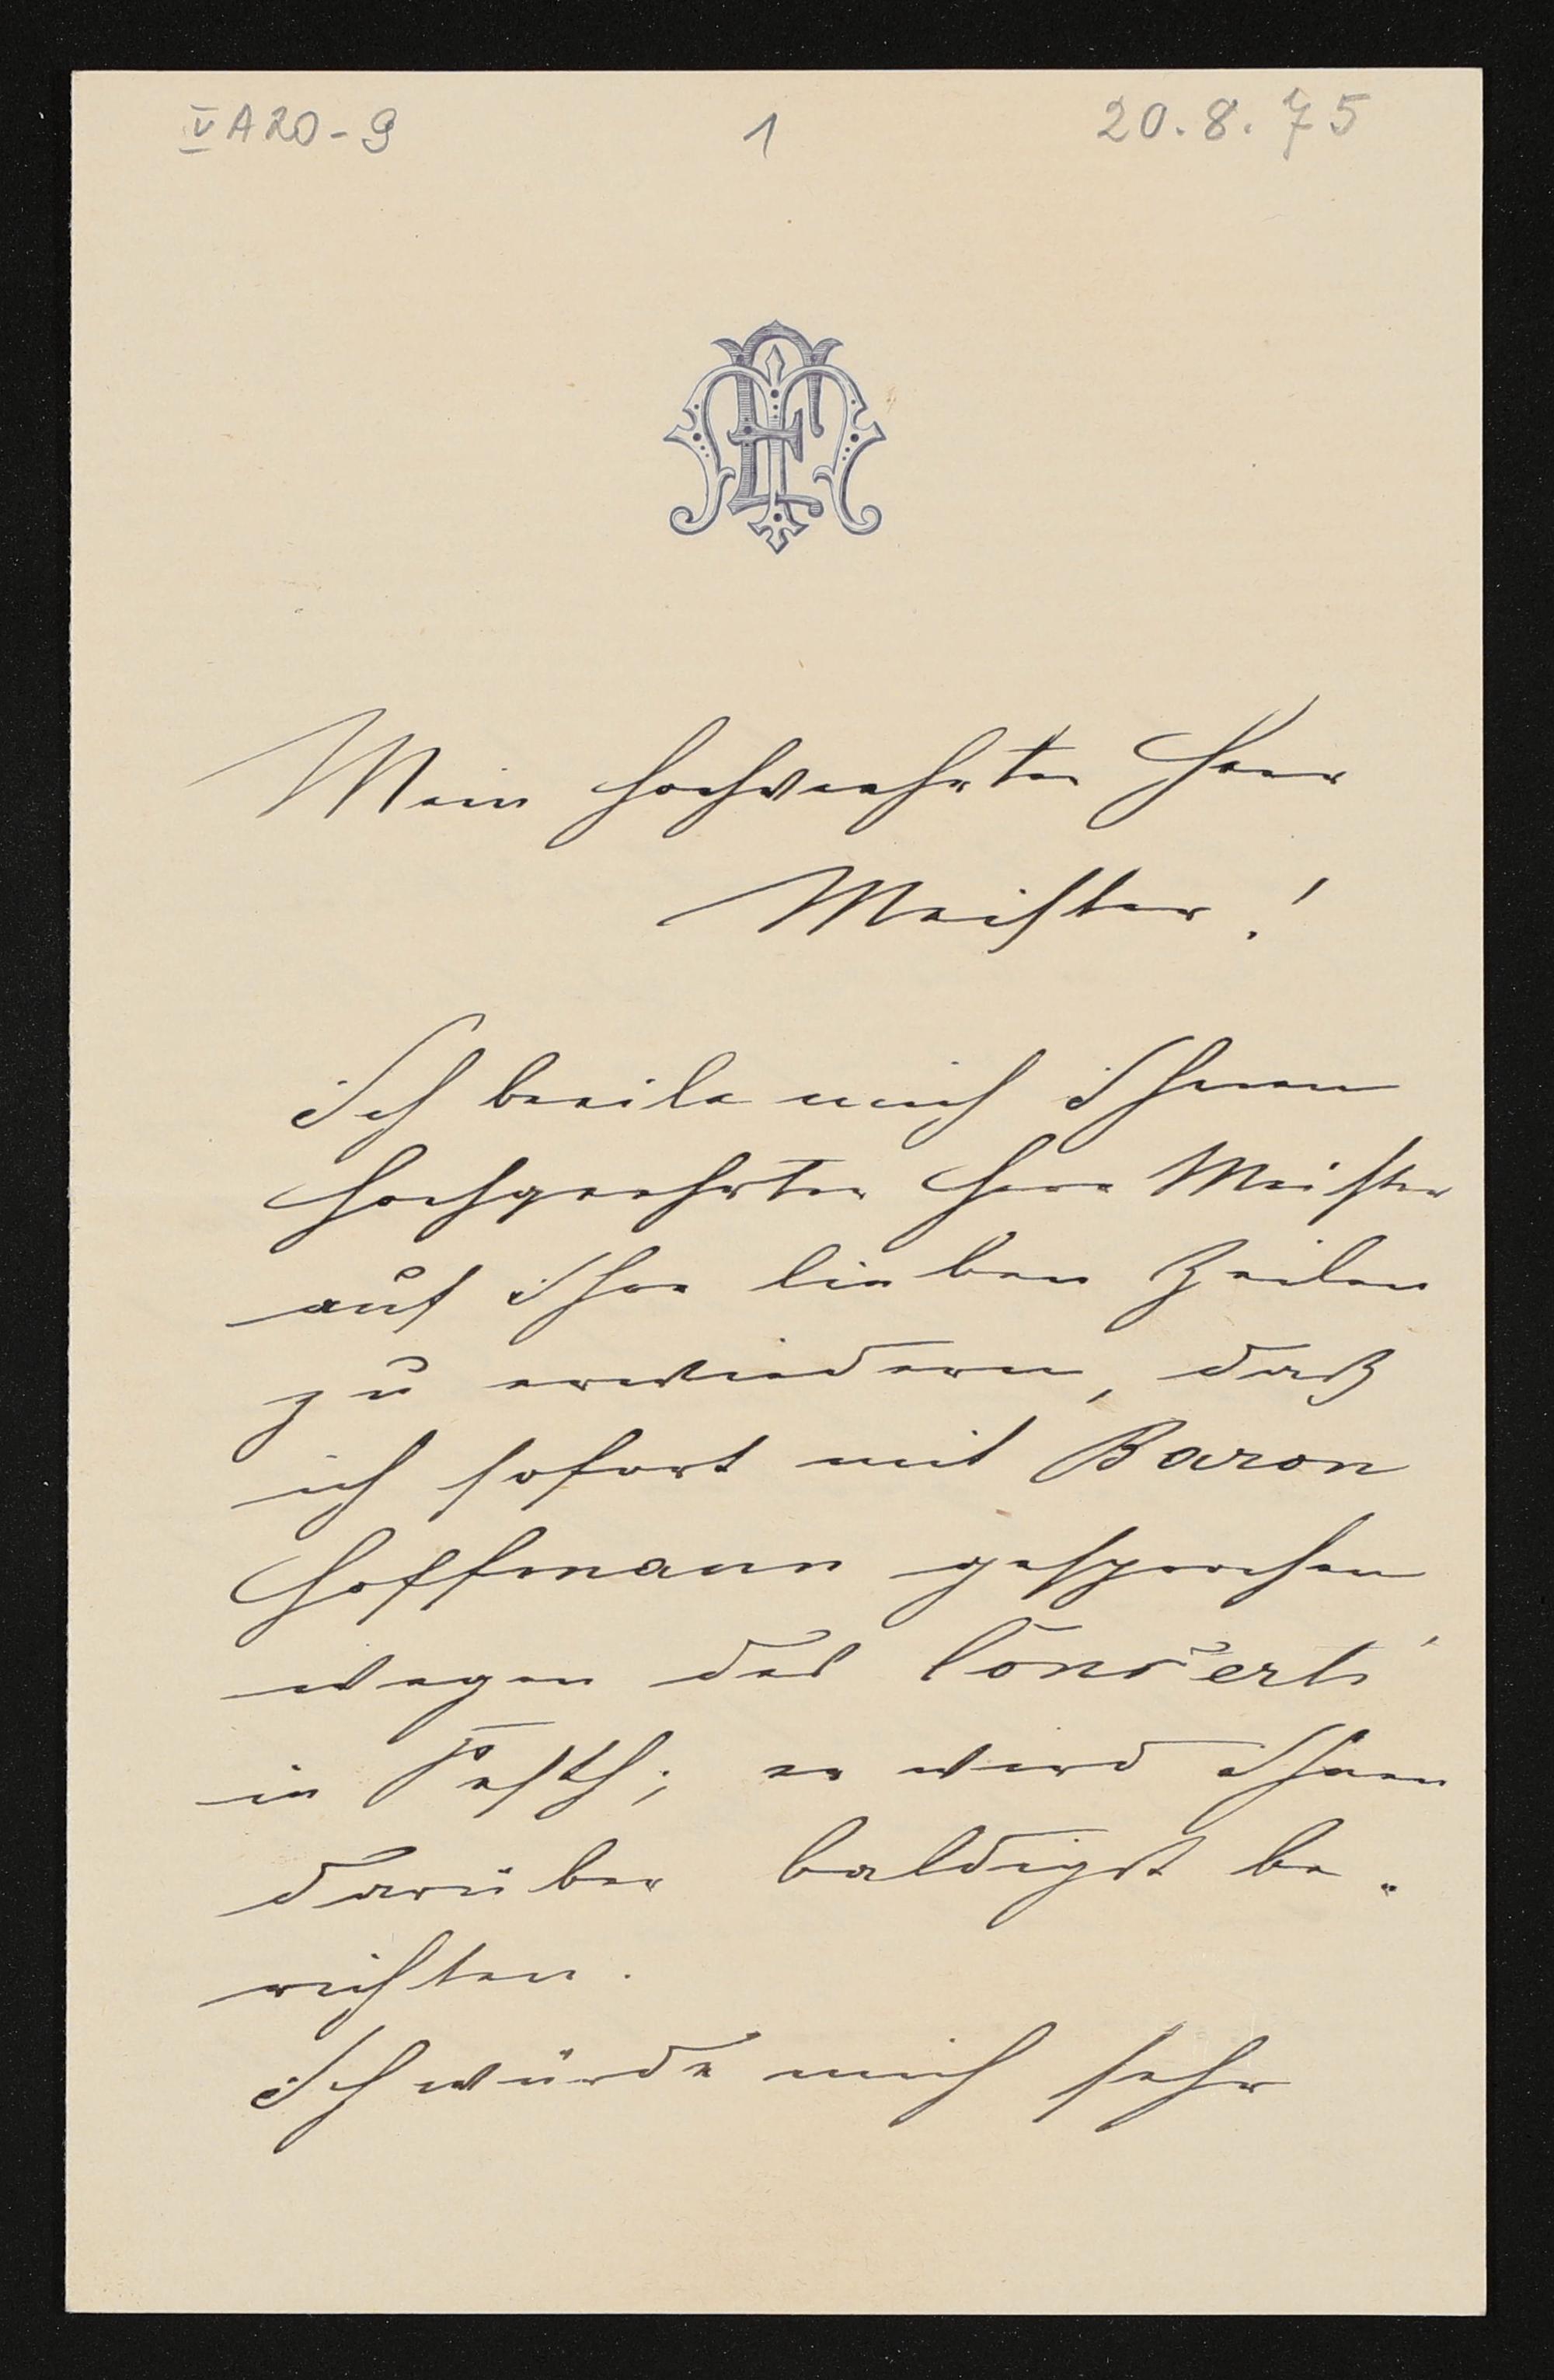 V A 20 - 9 1 20. 8. 75
Mein hochverehrter Herr
Meister!
Ich beeile mich Ihnen
hochgeehrter Herr Meister
auf Ihre lieben Zeilen
zu erwiedern, daß
ich sofort mit Baron
Hoffmann gesprochen
wegen des Concerts
in Pesth; er wird Ihnen
darüber baldigst be„
richten.
Ich würde mich sehr